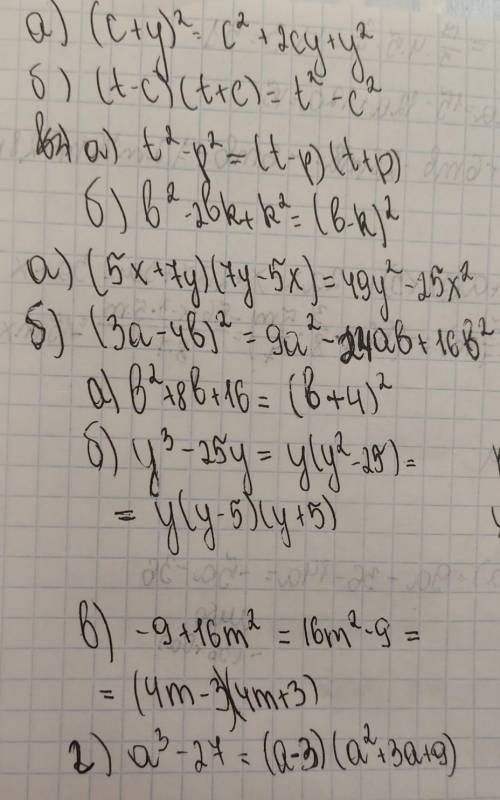 а) (c+y)² = c² + 2cy+y²
б) (t-c)(t+c)= t² - c²
а) t² - p² = (t-p)(t+p)
б) b² - 2bk + k² = (b-k)²
а) (5x+7y)(7y-5x) = 49y² - 25x²
б) (3a-4b)² = 9a² - 24ab + 16b²
а) b² + 8b + 16 = (b+4)²
б) y³ - 25y = y(y² - 25) =
= y(y-5)(y+5)
в) -9 + 16m² = 16m² - 9 =
= (4m-3)(4m+3)
г) a³ - 27 = (a-3)(a² + 3a + 9)